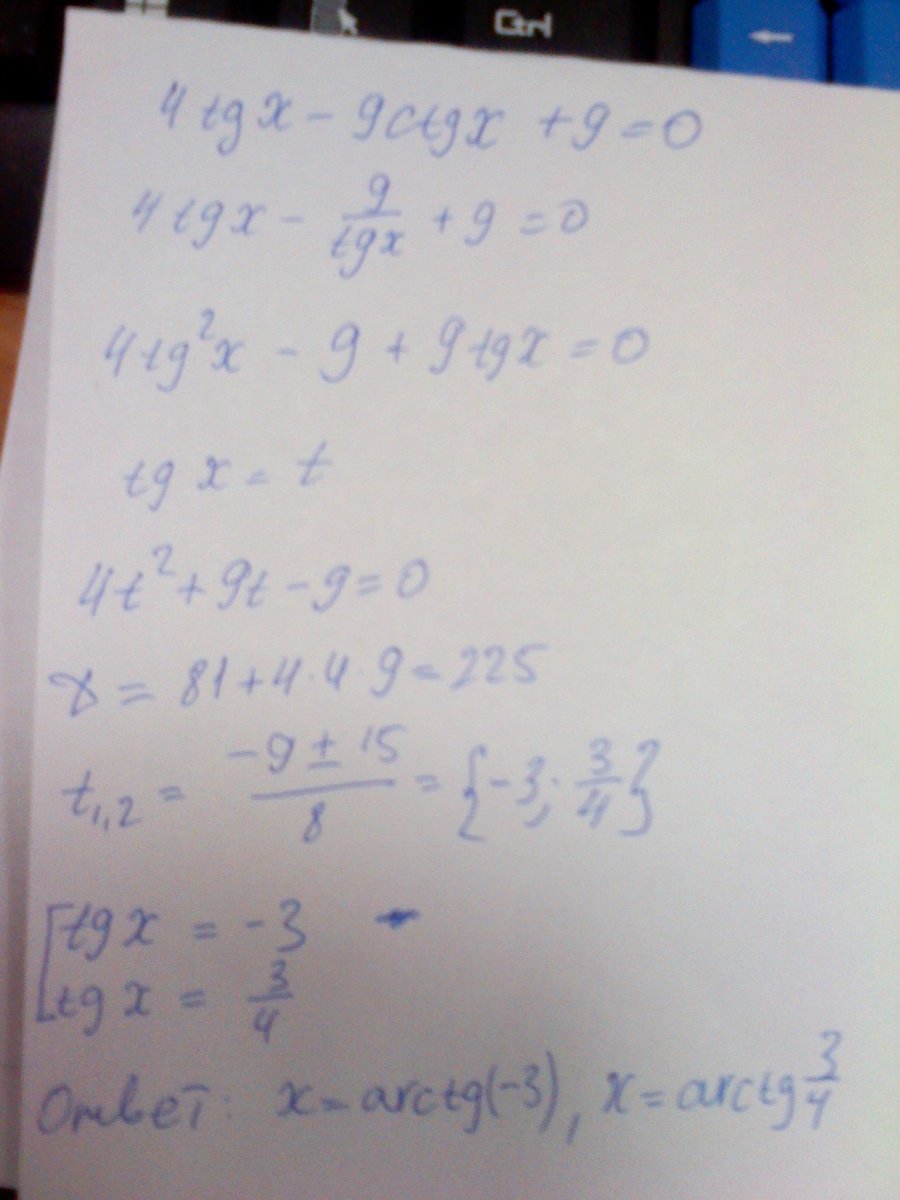 Ctrl
←
4 tg x - 9 ctg x + 9 = 0
4 tg x - 9/tg x + 9 = 0
4 tg²x - 9 + 9 tg x = 0
tg x = t
4t² + 9t - 9 = 0
D = 81 + 4·4·9 = 225
t₁,₂ = (-9 ± 15)/8 = {-3; 3/4}
[tg x = -3
tg x = 3/4
Ответ: x = arctg(-3), x = arctg 3/4